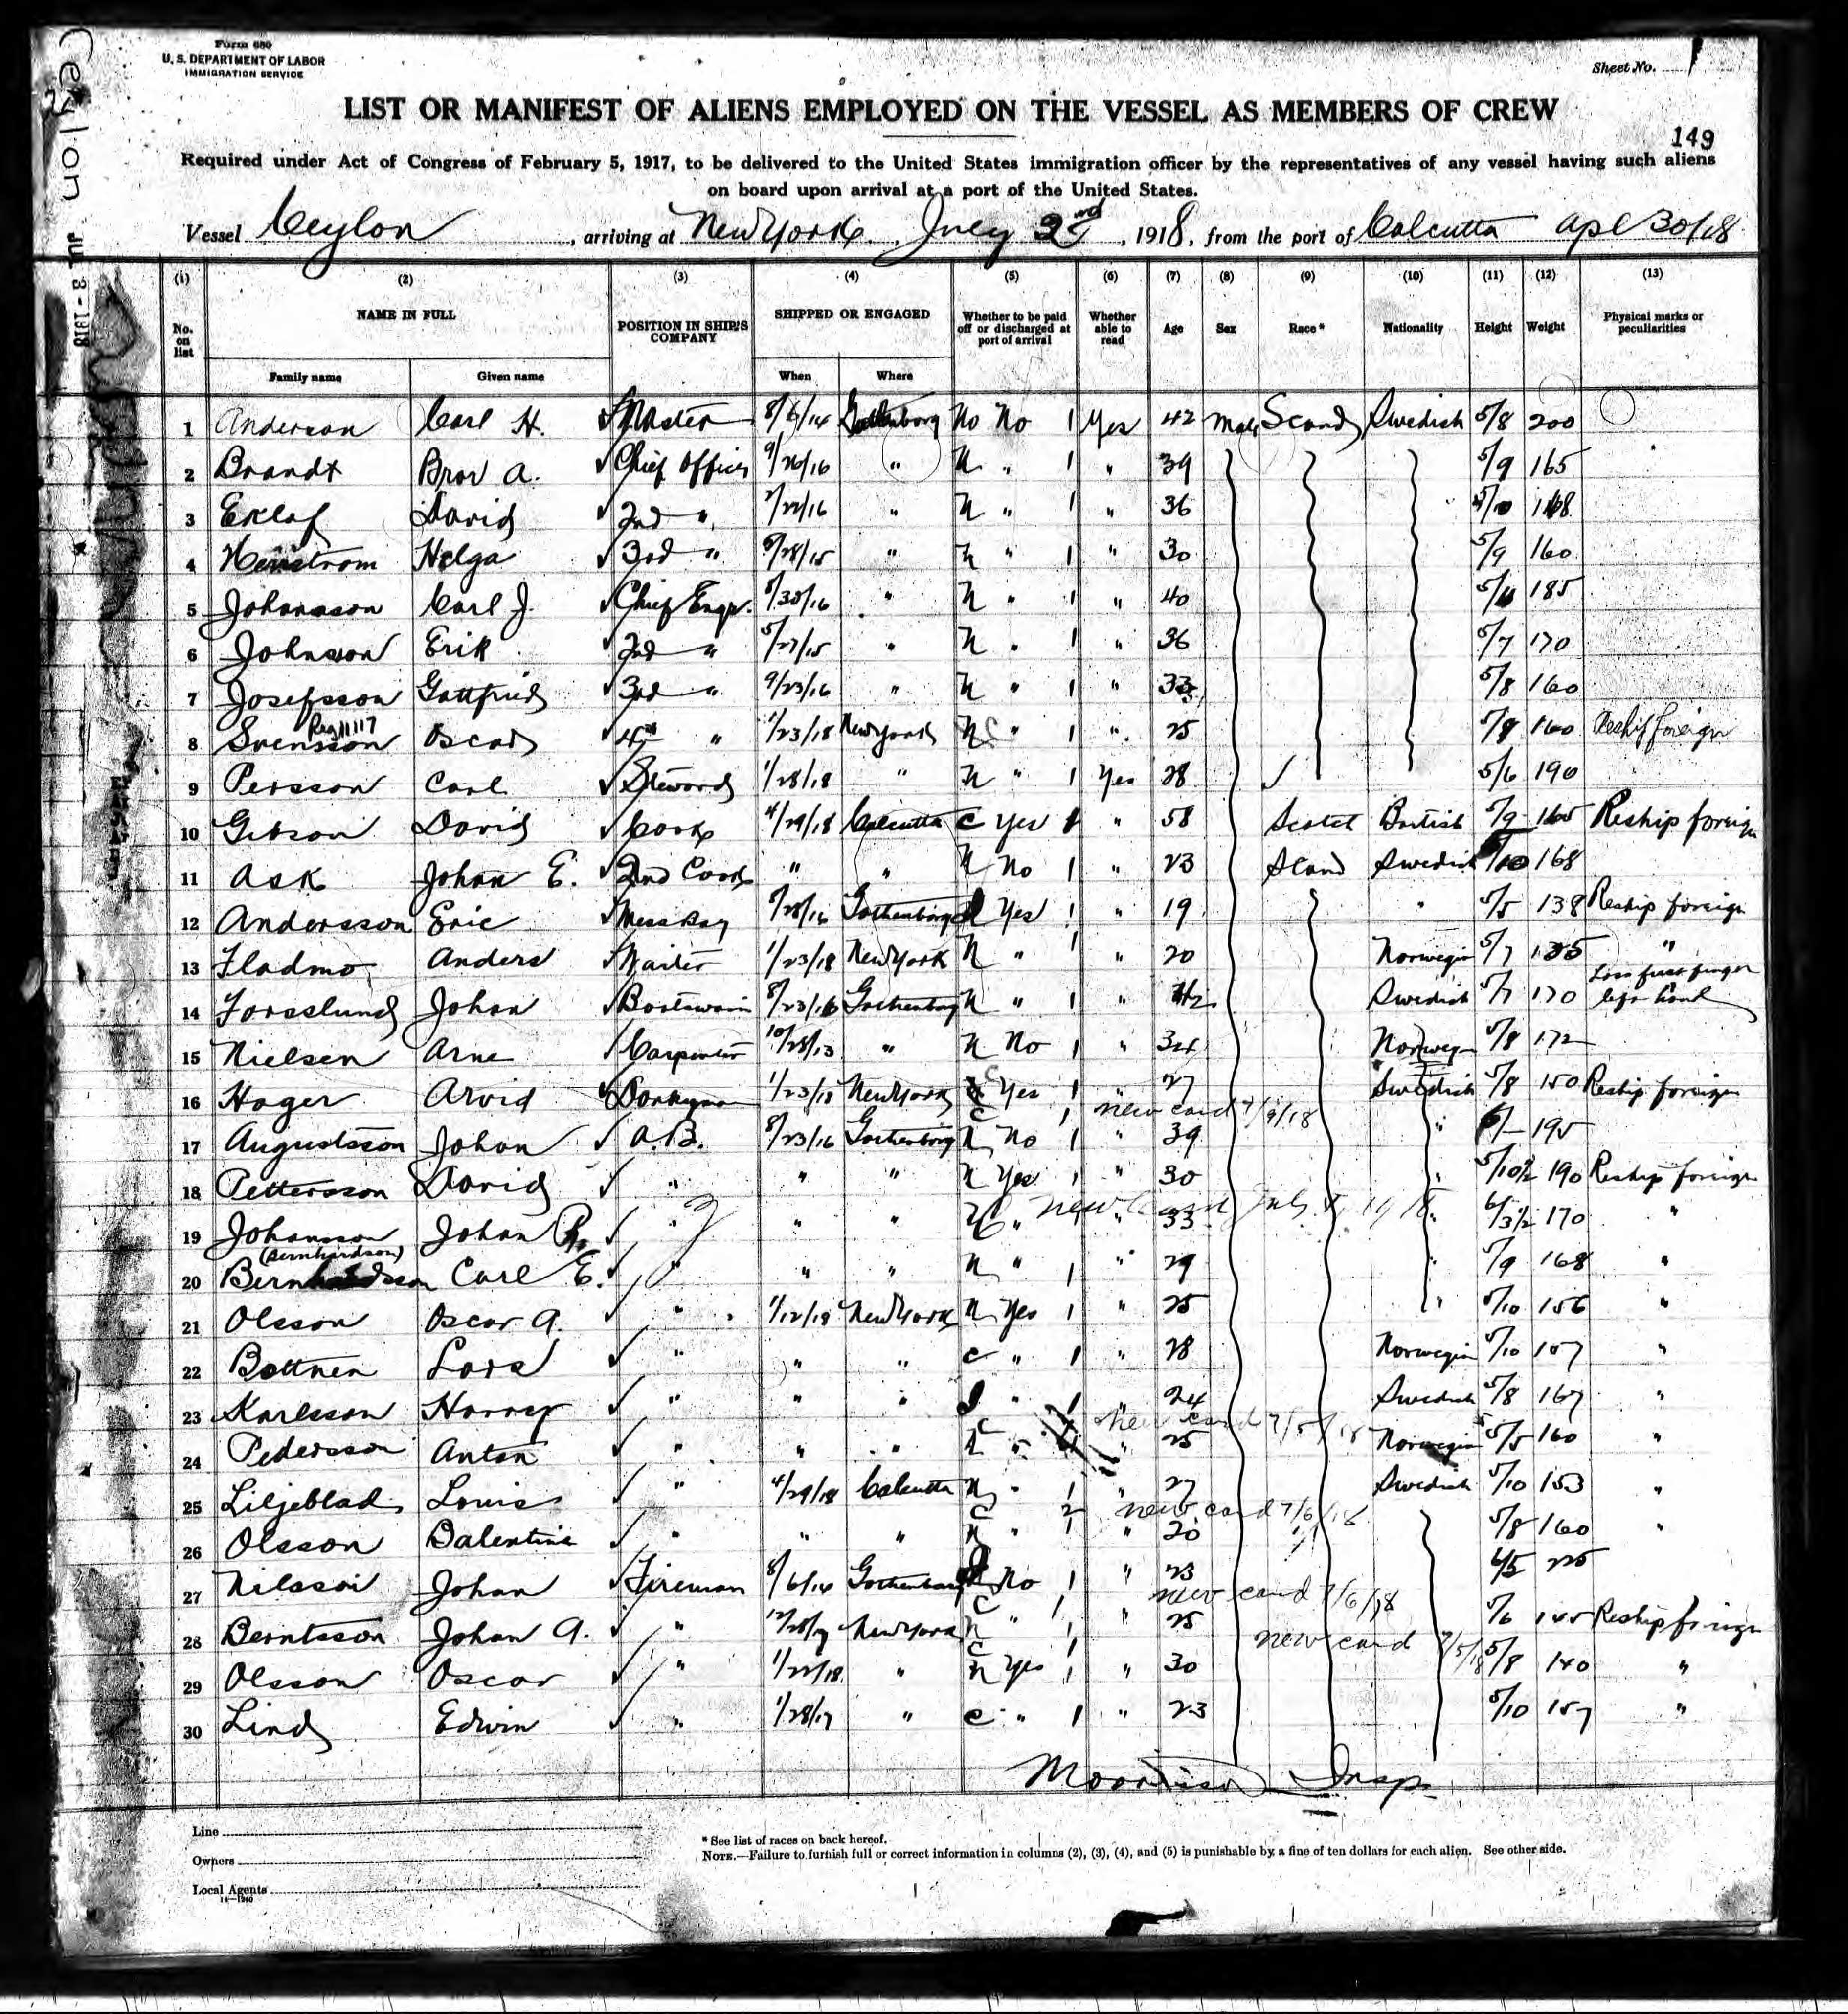 Ceylon
Form 680
U. S. DEPARTMENT OF LABOR
IMMIGRATION SERVICE
Sheet No. 1
LIST OR MANIFEST OF ALIENS EMPLOYED ON THE VESSEL AS MEMBERS OF CREW
149
Required under Act of Congress of February 5, 1917, to be delivered to the United States immigration officer by the representatives of any vessel having such aliens
on board upon arrival at a port of the United States.
Vessel Ceylon, arriving at New York July 3rd, 1918, from the port of Calcutta Apl 30/18
(1) (2) (3) (4) (5) (6) (7) (8) (9) (10) (11) (12) (13)
No. on list NAME IN FULL POSITION IN SHIP'S COMPANY SHIPPED OR ENGAGED Whether to be paid off or discharged at port of arrival Whether able to read Age Sex Race* Nationality Height Weight Physical marks or peculiarities
Family name Given name When Where
1 Anderson Carl H. Master 8/6/14 Gothenborg No No 1 Yes 42 Male Scand Swedish 5/8 200
2 Brandt Bror A. Chief Officer 9/26/16 " N " 1 " 39 5/9 165
3 Eklof David 2nd " /22/16 " N " 1 " 36 5/10 168
4 Helga 3rd " /28/15 " N " 1 " 30 5/9 160
5 Johansson Carl J. Chief Engr. /30/16 " N " 1 " 40 185
6 Johnsson Erik 2nd " 5/27/15 " N " 1 " 36 5/7 170
7 Josefsson Gottfrid 3rd " 9/23/16 " N " 1 " 33 5/8 160
8 Svensson Oscar 4th " 1/23/18 New York N C " 1 " 25 5/8 160 Reship foreign
9 Persson Carl Steward 1/28/18 " N " 1 Yes 28 5/6 190
10 Gibson David Cook 4/29/18 Calcutta C Yes 1 " 58 Scotch British 5/9 165 Reship foreign
11 Ask Johan E. 2nd Cook " " N No 1 " 23 Scand Swedish 5/10 168
12 Andersson Eric Mess Boy /28/16 Gothenborg Yes 1 " 19 " 5/5 138 Reship foreign
13 Fladmo Anders Waiter 1/23/18 New York N " 1 " 20 Norwegin 5/7 135 "
14 Forsslund Johan Boatswain 8/23/16 Gothenborg N " 1 " 42 Swedish 5/7 170 Loss first finger left hand
15 Nielsen Arne Carpenter 10/28/13 " N No 1 " 34 Norwegn 5/8 172
16 Hager Arvid Donkeyman 1/23/18 New York C Yes 1 " 27 Swedish 5/8 150 Reship foreign
new card 7/9/18
17 Augustsson Johan A.B. 8/23/16 Gothenborg N No 1 " 39 " 6/- 195
18 Pettersson David " " " N Yes 1 " 30 " 5/10½ 190 Reship foreign
new Card July
19 Johansson Johan " " " " " 33 " 6/3½ 170 "
(Bernhardson)
20 Carl E. " " " N " 1 " 29 " 5/9 168 "
21 Olsson Oscar A. " 1/12/18 New York N Yes 1 " 25 " 5/10 156 "
22 Lars " " " C " 1 " 28 Norwegin 5/10 157 "
23 Karlsson Harry " " " " 1 " 24 Swedish 5/8 167 "
new card 7/5/18
24 Pedersson Anton " " " " " 25 Norwegin 5/5 160 "
25 Liljeblad Louis " 4/29/18 Calcutta N " 1 " 27 Swedish 5/10 153 "
new card 7/6/18
26 Olsson Balentine " " " N " 1 " 20 5/8 160 "
27 Nilsson Johan Fireman 8/6/14 Gothenborg No 1 " 23 6/5 225
new card 7/6/18
28 Berntsson Johan A. " New York N " 1 " 25 5/6 145 Reship foreign
new card 7/5/18
29 Olsson Oscar " 1/22/18 " N Yes 1 " 30 5/8 140 "
30 Lind Edwin " 1/28/17 " C " 1 " 23 5/10 157 "
Morrison Insp.
Line
Owners
Local Agents
* See list of races on back hereof.
NOTE.—Failure to furnish full or correct information in columns (2), (3), (4), and (5) is punishable by a fine of ten dollars for each alien. See other side.